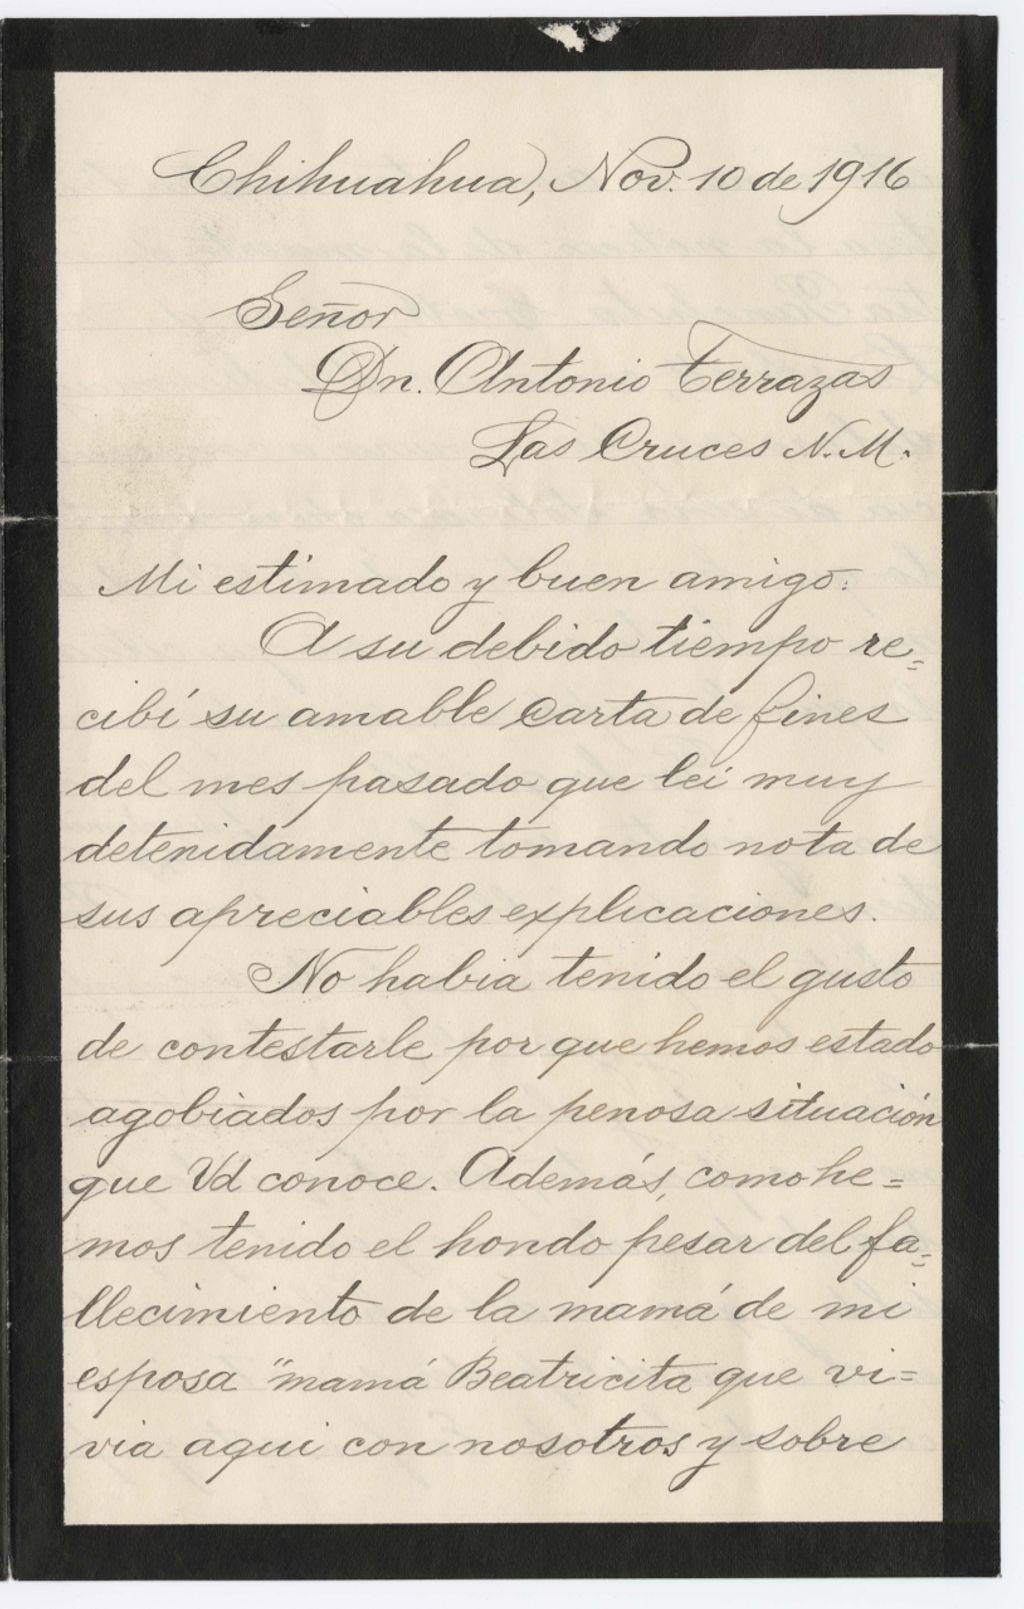 Chihuahua, Nov. 10 de 1916
Señor
Dn. Antonio Terrazas
Las Cruces N. M.
Mi estimado y buen amigo:
A su debido tiempo re=
cibí su amable carta de fines
del mes pasado que leí muy
detenidamente tomando nota de
sus apreciables explicaciones.
No habia tenido el gusto
de contestarle por que hemos estado
agobiados por la penosa situación
que Vd conoce. Además, como he=
mos tenido el hondo pesar del fa=
llecimiento de la mamá de mi
esposa "mamá Beatricita que vi=
via aqui con nosotros y sobre